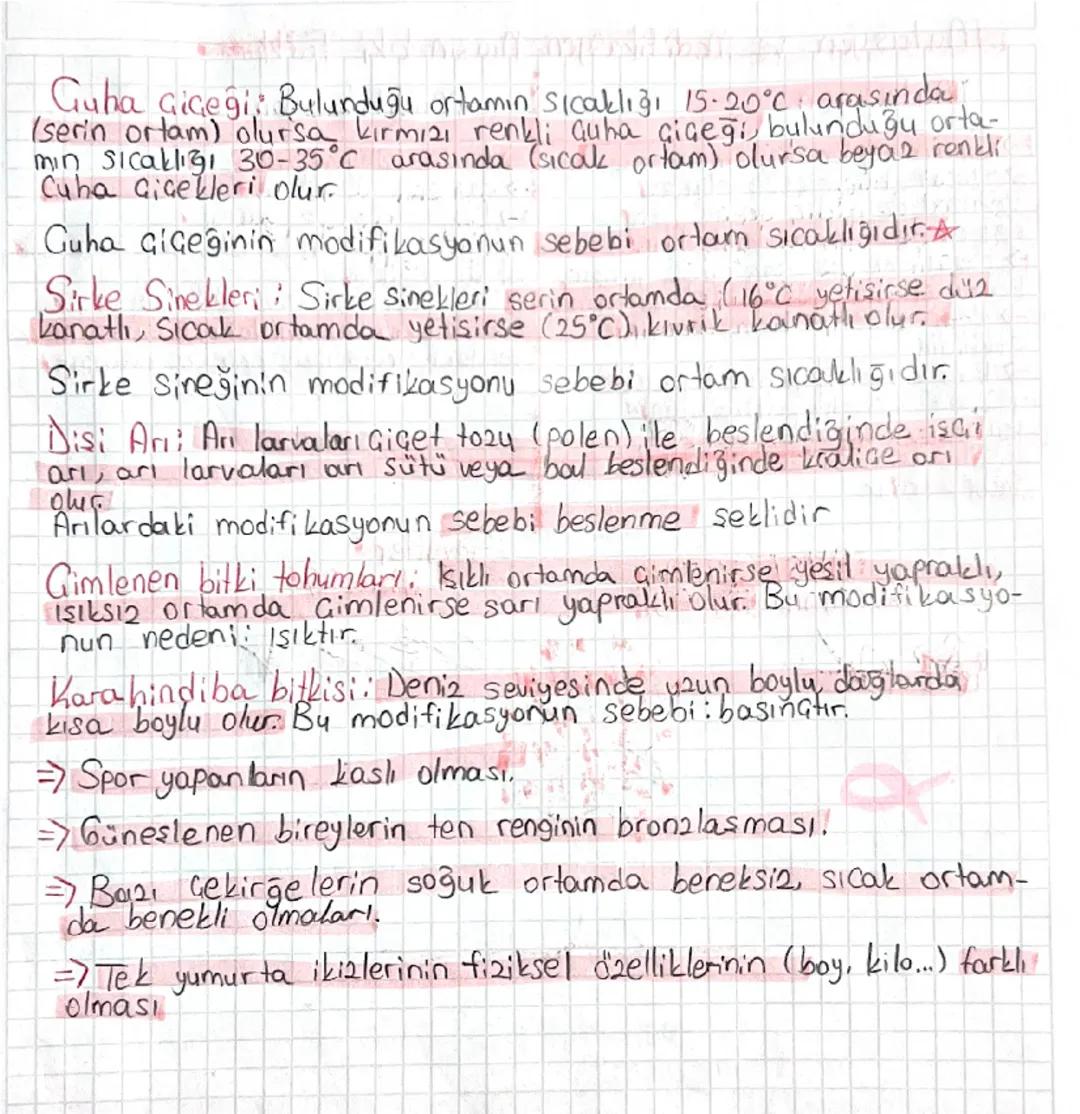 Çuha Çiçeği: Bulunduğu ortamın sıcaklığı 15-20°C arasında
(serin ortam) olursa kırmızı renkli çuha çiçeği, bulunduğu orta-
mın sıcaklığı 30-35°C arasında (sıcak ortam) olursa beyaz renkli
Çuha Çiçekleri olur.
Çuha çiçeğinin modifikasyonun sebebi ortam sıcaklığıdır.
Sirke Sinekleri: Sirke sinekleri serin ortamda (16°C yetişirse düz
kanatlı, sıcak ortamda yetişirse (25°C) kıvrık kanatlı olur.
Sirke sineğinin modifikasyonu sebebi ortam sıcaklığıdır.
Dişi Arı: Arı larvaları Çiçet tozu (polen) ile beslendiğinde işçi
arı, arı larvaları arı sütü veya bal beslendiğinde kraliçe arı
olur.
Arılardaki modifikasyonun sebebi beslenme şeklidir
Çimlenen bitki tohumları: Işıklı ortamda çimlenirse yeşil yapraklı,
ışıksız ortamda çimlenirse sarı yapraklı olur. Bu modifikasyo-
nun nedeni: ışıktır.
Karahindiba bitkisi: Deniz seviyesinde uzun boylu, dağlarda
kısa boylu olur. Bu modifikasyonun sebebi: basınçtır.
=> Spor yapanların kaslı olması.
=> Güneşlenen bireylerin ten renginin bronzlaşması.
=> Bazı Çekirgelerin soğuk ortamda beneksiz, sıcak ortam-
da benekli olmaları.
=> Tek yumurta ikizlerinin fiziksel özelliklerinin (boy, kilo...) farklı
olması